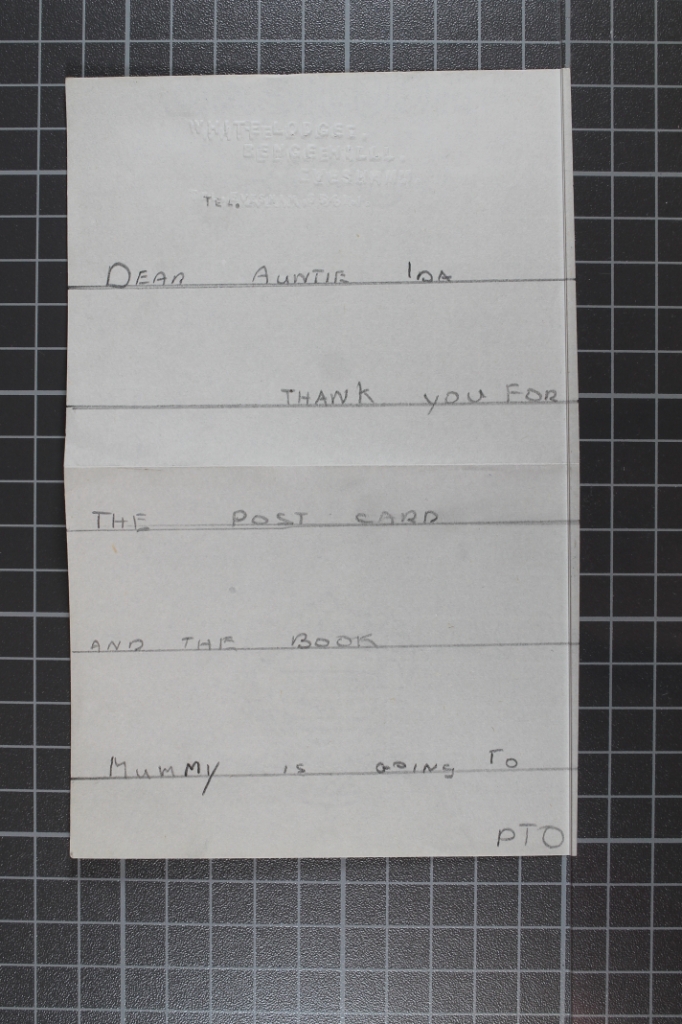 WHITE LODGE,
TEL.
DEAR AUNTIE IDA
THANK YOU FOR
THE POST CARD
AND THE BOOK
MUMMY IS GOING TO
PTO